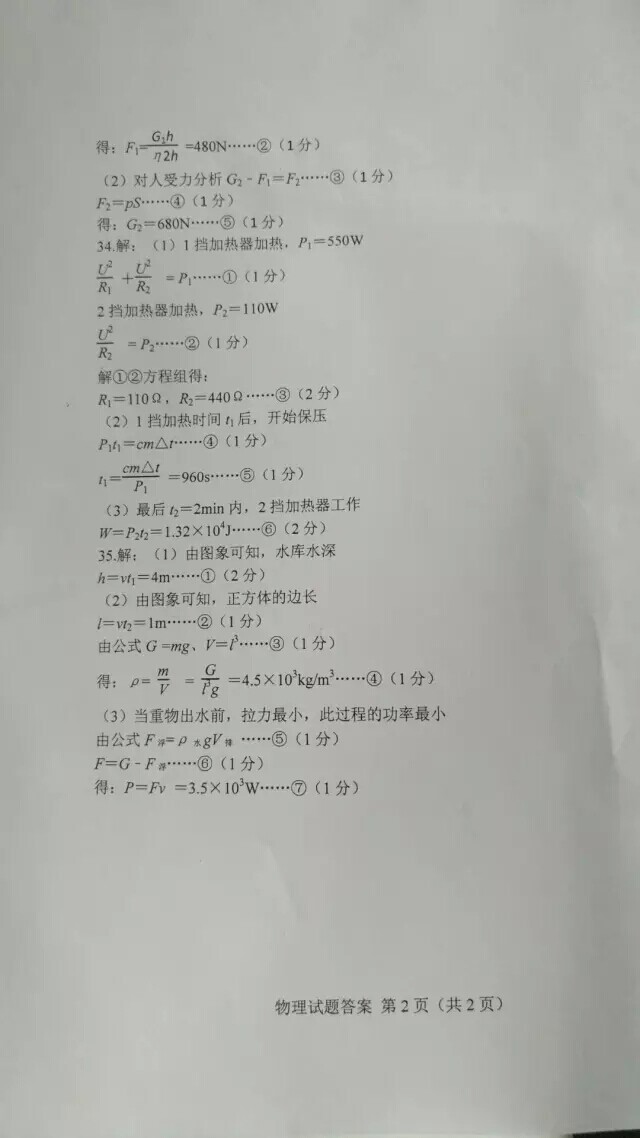 得：F₁=G₂h/η2h=480N……②（1分）
（2）对人受力分析 G₂－F₁＝F₂……③（1分）
F₂＝pS……④（1分）
得：G₂＝680N……⑤（1分）
34.解：（1）1 挡加热器加热，P₁＝550W
U²/R₁＋U²/R₂＝P₁……①（1分）
2 挡加热器加热，P₂＝110W
U²/R₂＝P₂……②（1分）
解①②方程组得：
R₁＝110Ω，R₂＝440Ω……③（2分）
（2）1 挡加热时间 t₁ 后，开始保压
P₁t₁＝cm△t……④（1分）
t₁＝cm△t/P₁＝960s……⑤（1分）
（3）最后 t₂＝2min 内，2 挡加热器工作
W＝P₂t₂＝1.32×10⁴J……⑥（2分）
35.解：（1）由图象可知，水库水深
h＝vt₁＝4m……①（2分）
（2）由图象可知，正方体的边长
l＝vt₂＝1m……②（1分）
由公式 G =mg、V＝l³……③（1分）
得：ρ=m/V=G/l³g＝4.5×10³kg/m³……④（1分）
（3）当重物出水前，拉力最小，此过程的功率最小
由公式 F浮=ρ水gV排 ……⑤（1分）
F＝G－F浮……⑥（1分）
得：P＝Fv ＝3.5×10³W……⑦（1分）
物理试题答案 第 2 页（共 2 页）